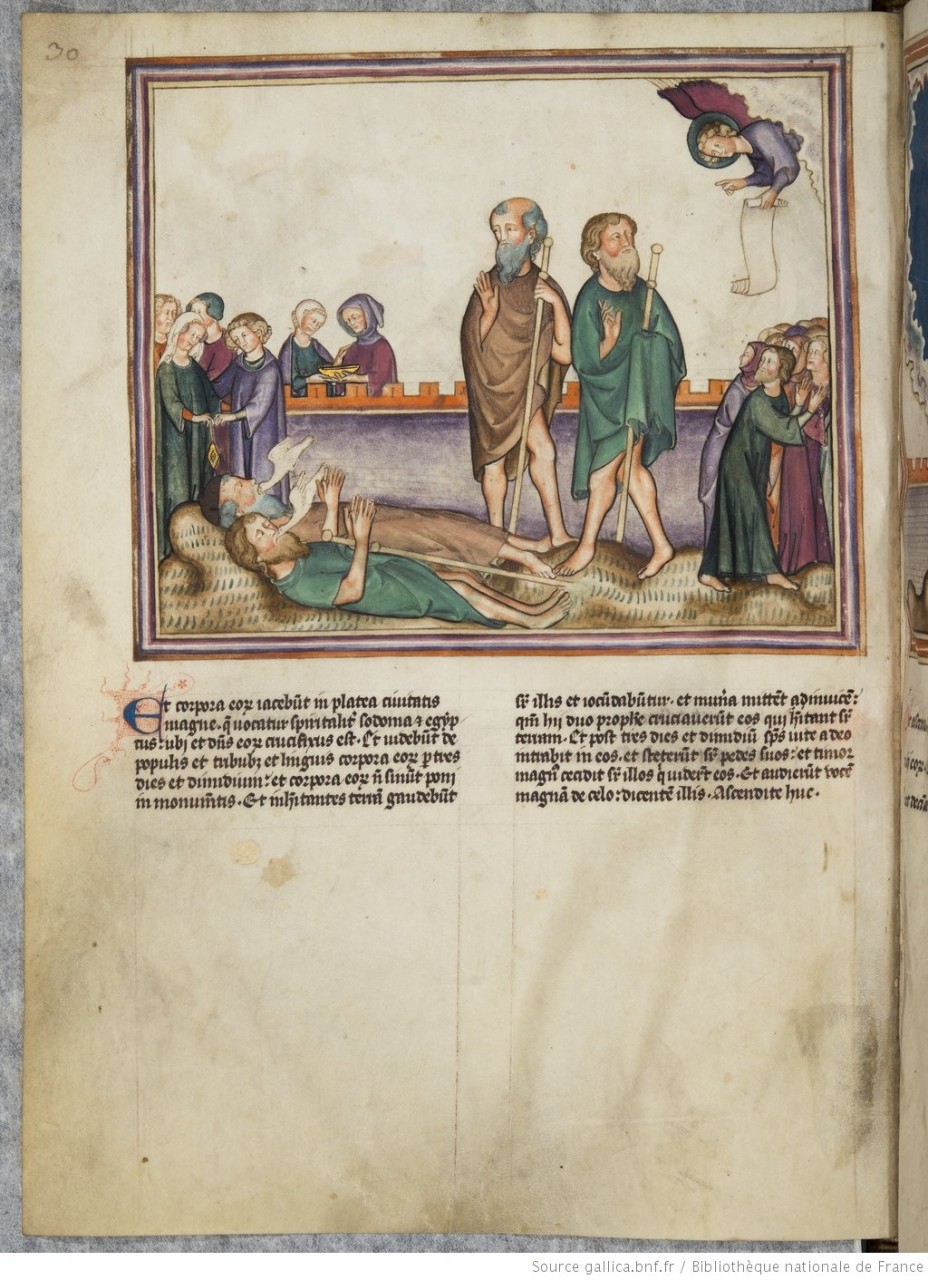 30
Et corpora eoꝝ iacebūt in platea ciuitatis
magne. q̄ uocatur spiritalit᷒ sodoma ⁊ egyp
tus: ubi et dn̄s eoꝝ crucifixus est. Et uidebūt de
populis et tribubꝫ et linguis corpora eoꝝ ꝑ tres
dies et dimidium: et corpora eoꝝ n̄ sinūt poni
in monum̄tis. Et inh̄itantes terrā gaudebūt
sr̄ illis et iocūdabūtur. et mun̄a mittēt adinuicē:
qm̄ hii duo prophe cruciauerūt eos qui h̄itant sr̄
terram. Et post tres dies et dimidiū sp̄s uite a deo
intrabit in eos. et steterūt sr̄ pedes suos: et timor
magn᷒ cecidit sr̄ illos q̇ uider̄t eos. Et audierūt uocē
magnā de celo: dicentē illis. Ascendite huc.
Source gallica.bnf.fr / Bibliothèque nationale de France